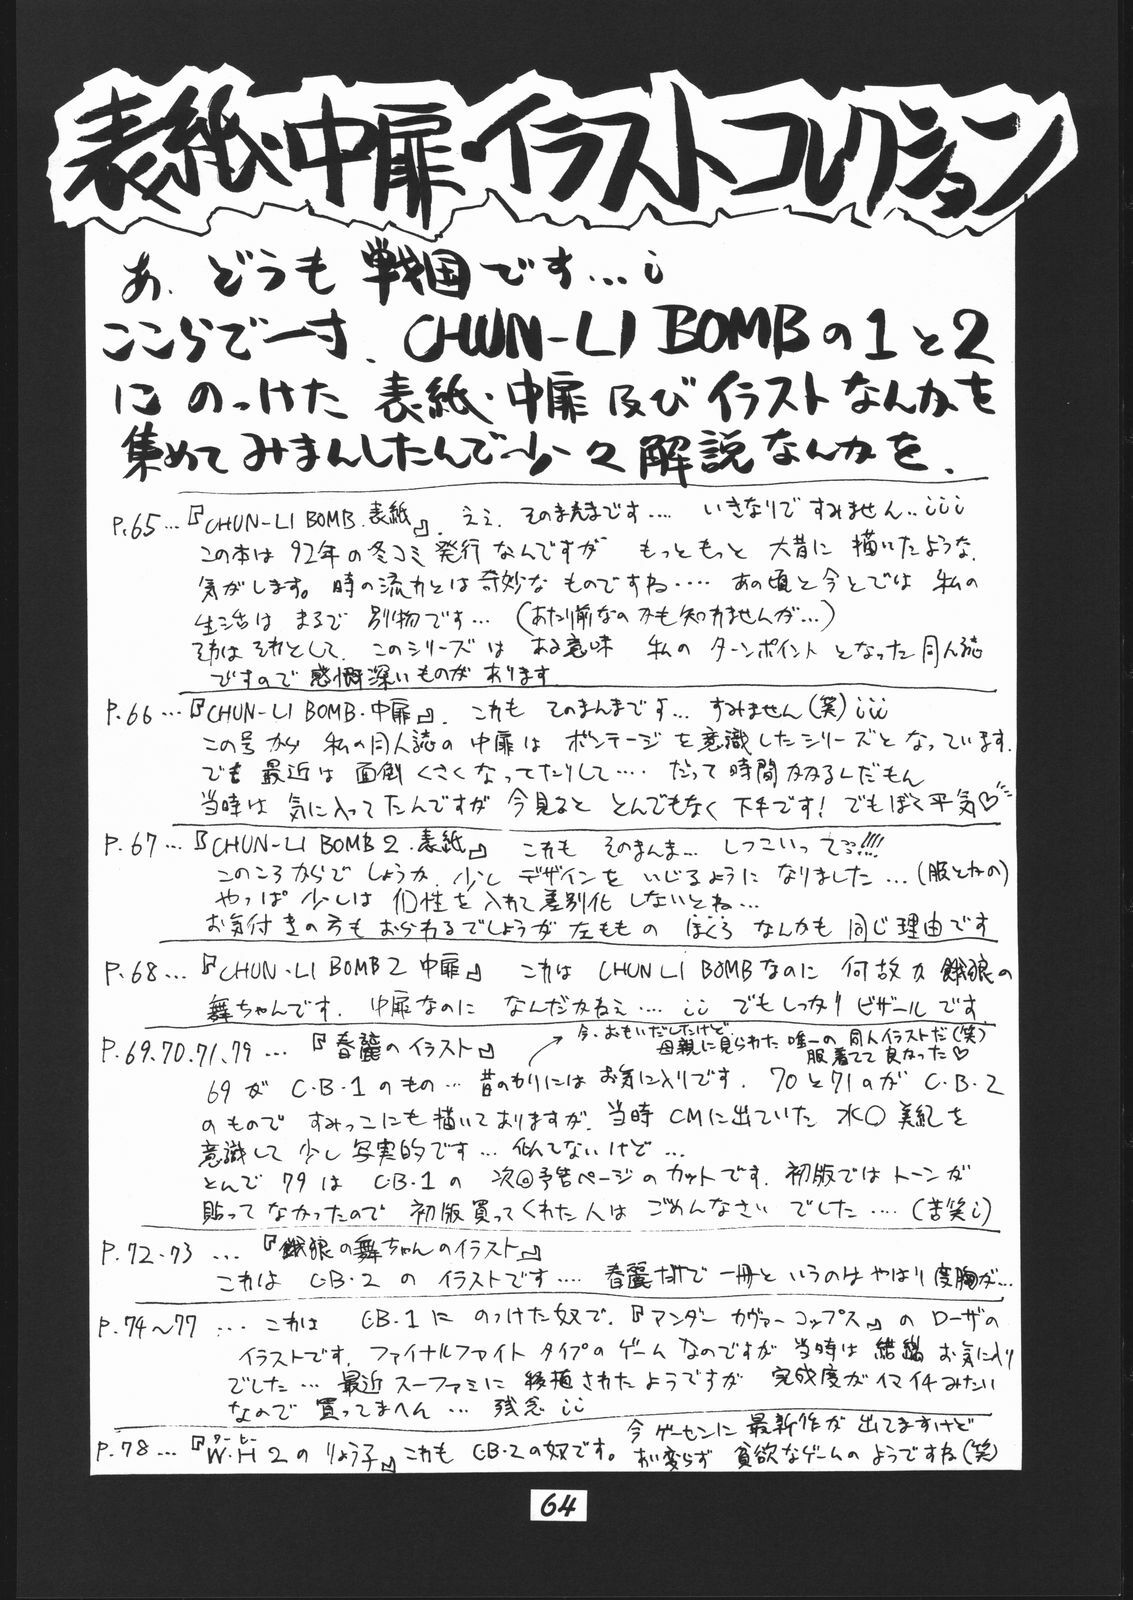 表紙・中扉・イラストコレクション
あ、どうも戦国です…i
ここらで一寸、CHUN-LI BOMBの1と2
にのっけた表紙・中扉及びイラストなんかを
集めてみまんしたんで少々解説なんかを、
P.65…『CHUN-LI BOMB.表紙』、ええ、そのまんまです…. いきなりですみません..iii
この本は92年の冬コミ発行なんですが もっともっと大昔に描いたような、
気がします。時の流れとは奇妙なものですね‥‥ あの頃と今とでは私の
生活はまるで別物です…(あたり前なのかも知れませんが…)
それはそれとして、このシリーズはある意味 私のターンポイントとなった同人誌
ですので感慨深いものがあります
P.66…『CHUN-LI BOMB・中扉』、これもそのまんまです…すみません(笑)iii
この号から私の同人誌の中扉はボンテージを意識したシリーズとなっています.
でも最近は面倒くさくなってたりして‥‥だって時間かかるんだもん
当時は気に入ってたんですが今見るととんでもなく下手です!でもぼく平気♡
P.67…『CHUN-LI BOMB2.表紙』 これもそのまんま…しつこいって!!!!
このころからでしょうか、少しデザインをいじるようになりました…(服とかの)
やっぱ少しは個性を入れて差別化しないとね…
お気付きの方もおられるでしょうが左もものほくろなんかも同じ理由です
P.68…『CHUN-LI BOMB2中扉』 これはCHUN LI BOMBなのに何故か餓狼の
舞ちゃんです. 中扉なのになんだかねぇ‥‥ii でもしっかりビザールです
P.69.70.71.79…『春麗のイラスト』
今、おもいだしたけど、
母親に見られた唯一の同人イラストだ(笑)
服着てて良かった♡
69がC.B.1のもの…昔のわりにはお気に入りです. 70と71のがC.B.2
のものですみっこにも描いておりますが、当時CMに出ていた水〇美紀を
意識して少し写実的です…似てないけど…
とんで79はC.B.1の次回予告ページのカットです. 初版ではトーンが
貼ってなかったので初版買ってくれた人はごめんなさいでした‥‥(苦笑i)
P.72.73…『餓狼の舞ちゃんのイラスト』
これはC.B.2のイラストです‥‥春麗だけで一冊というのはやはり度胸が…
P.74〜77…これはC.B.1にのっけた奴で、『アンダーカヴァーコップス』のローザの
イラストです. ファイナルファイトタイプのゲームなのですが当時は結構お気に入り
でした…最近スーファミに移植されたようですが完成度がイマイチみたい
なので買ってまへん…残念ii
P.78…『W.H2のりょう子』これもC.B.2の奴です。今ゲーセンに最新作が出てますけど
あい変らず貪欲なゲームのようですね(笑)
64